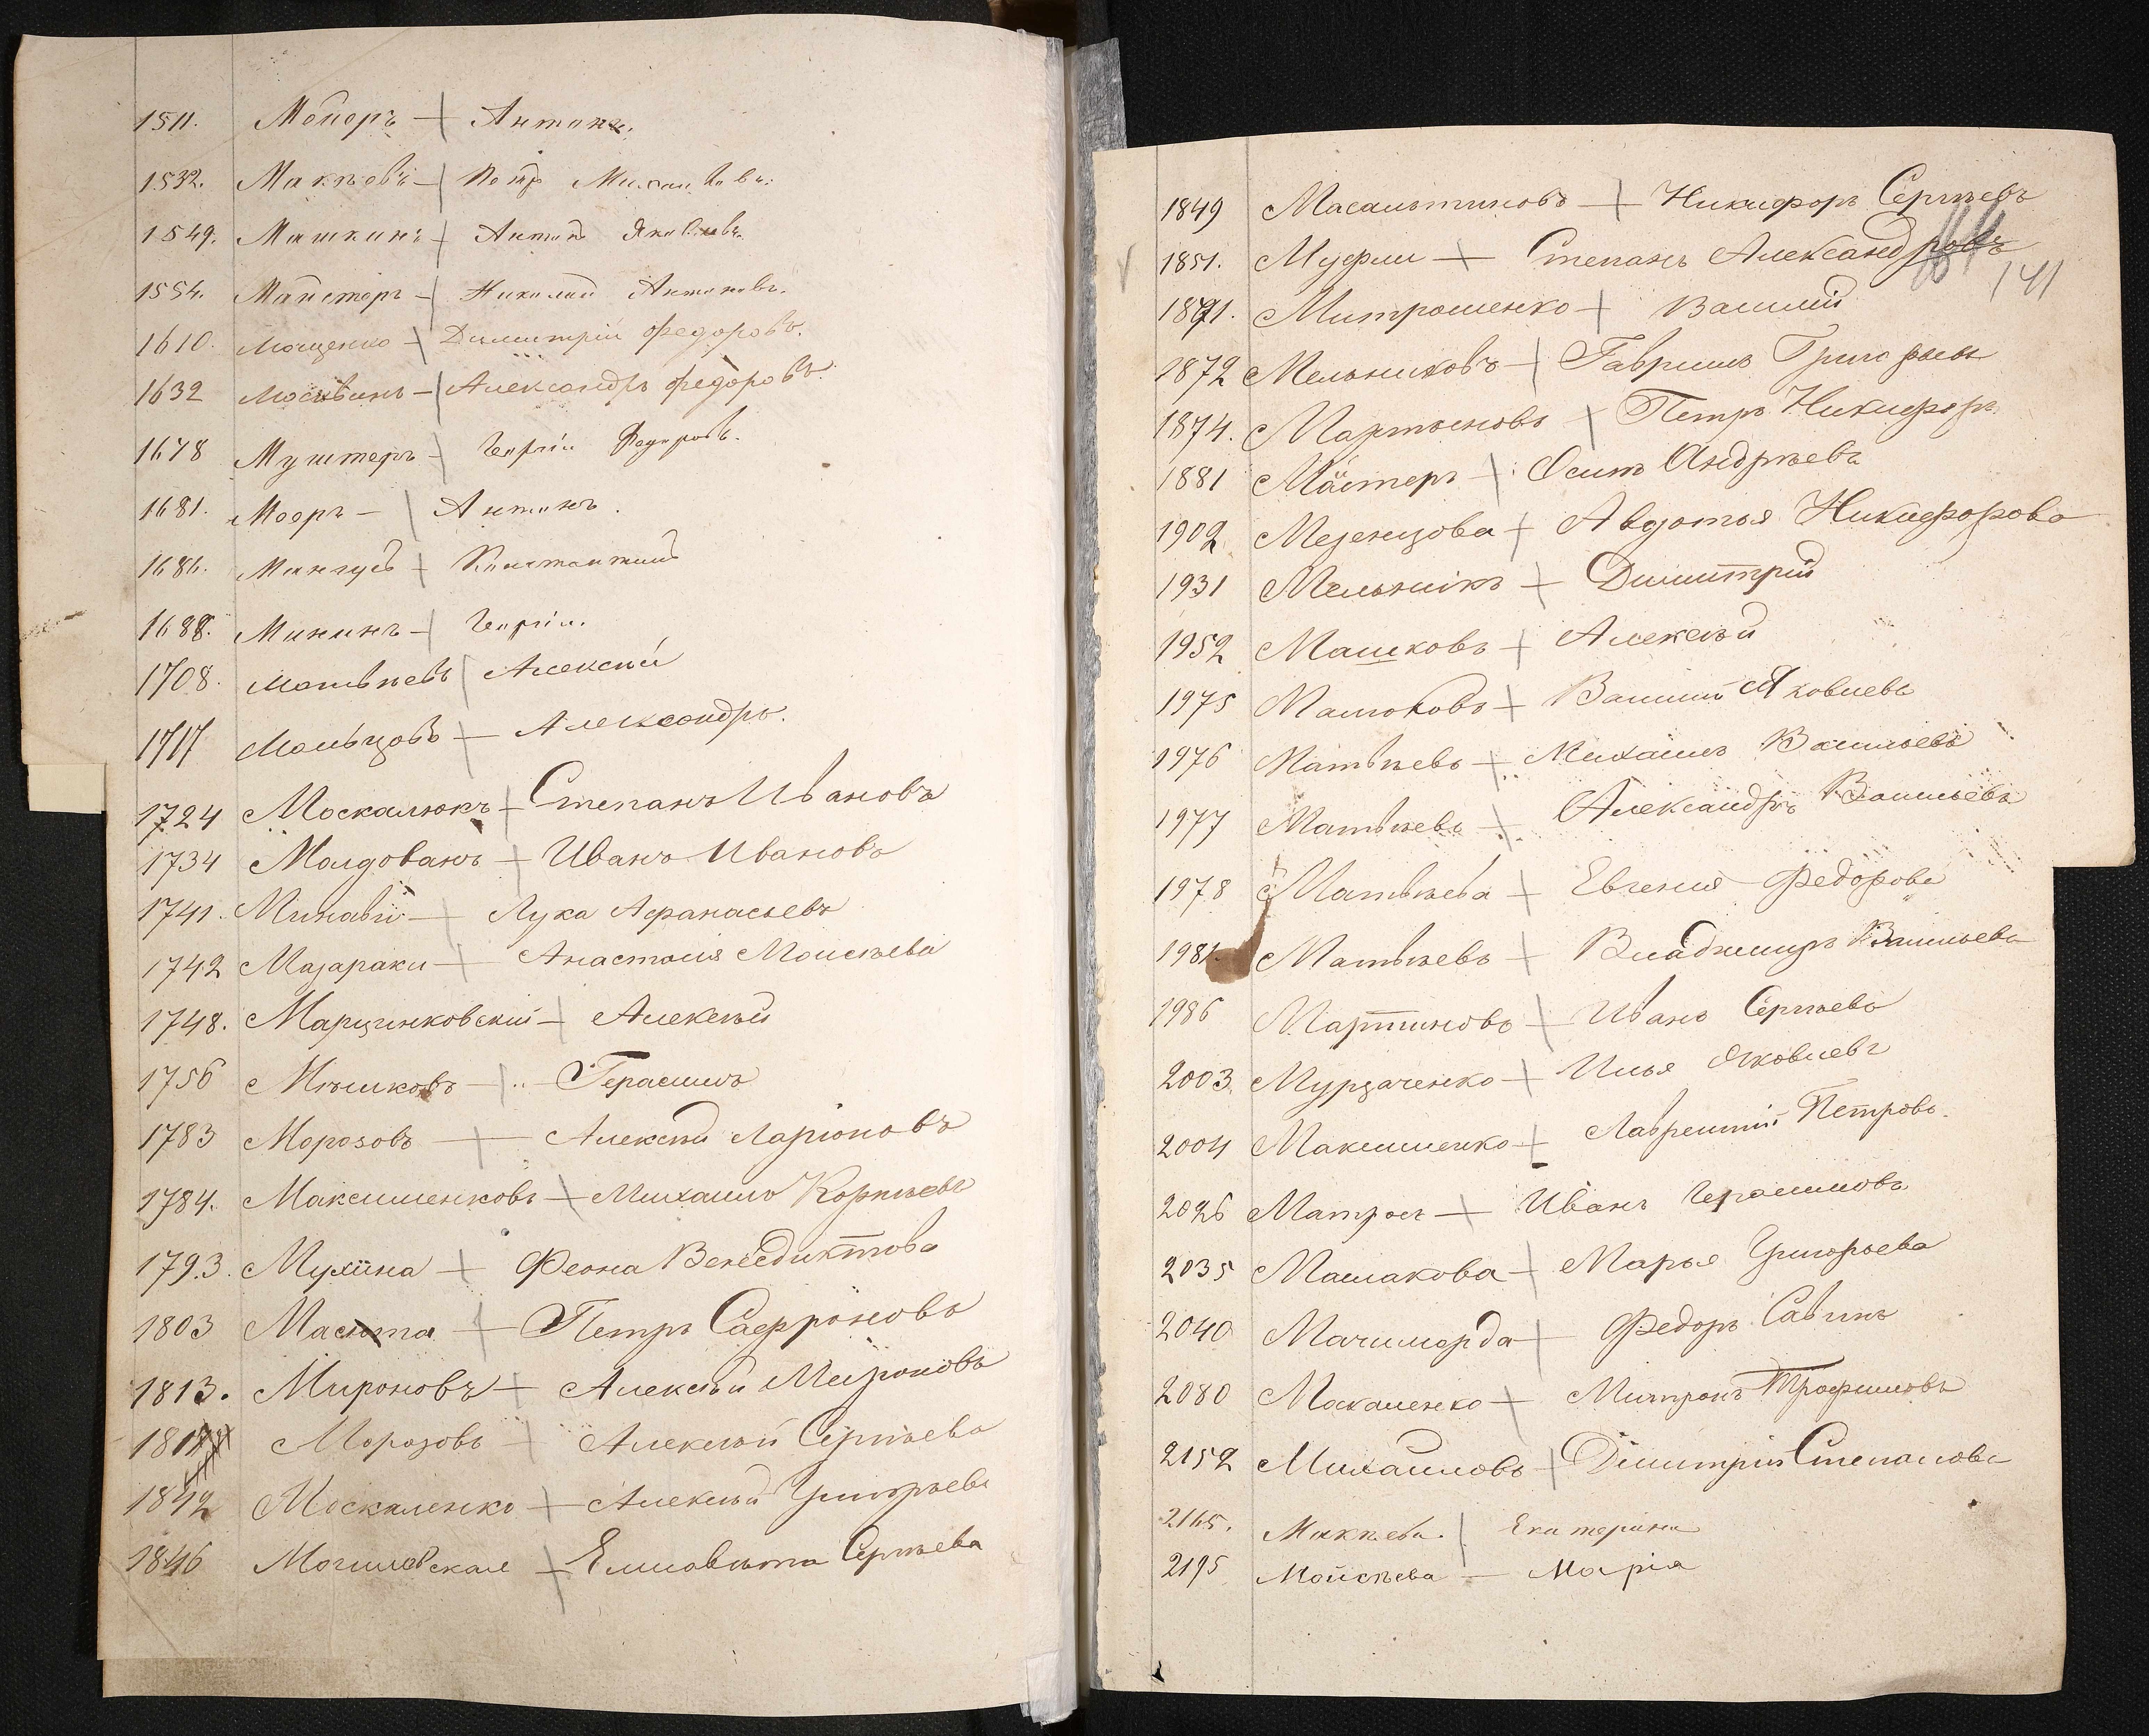 1511. Мейеръ — Антонъ.
1532. Макѣевъ — Петръ Михайловъ.
1549. Машкинъ — Антонъ Яковлевъ.
1554. Майстеръ — Николай Антоновъ.
1610. Мащенко — Димитрій Федоровъ.
1632 Москвинъ — Александръ Федоровъ.
1678 Муштеръ — Георгій Федоровъ.
1681. Мооръ — Антонъ.
1686. — Константинъ
1688. Мининъ — Георгій.
1708. Матвѣевъ Алексѣй
1717 Мальцовъ — Александръ.
1724 Москалюкъ — Степанъ Ивановъ
1734 Молдованъ — Иванъ Ивановъ
1741. — Лука Афанасьевъ
1742 Мазараки — Анастасія Моисѣева
1748. Марцинковскій — Алексѣй
1756 Мѣшковъ — Герасимъ
1783 Морозовъ — Алексѣй Ларіоновъ
1784. Максименковъ — Михаилъ Корнѣевъ
1793. Мухина — Феона Венедиктова
1803 — Петръ Сафроновъ
1813. Мироновъ — Алексѣй Мироновъ
Морозовъ — Алексѣй Сергѣевъ
1842 Москаленко — Алексѣй Григорьевъ
1846 Могилевская — Елисавета Сергѣева
144
141
1849 Масальтиновъ — Никифоръ Сергѣевъ
1851. Муфли — Степанъ Александровъ
1871. Митрошенко — Василій
1872 Мельниковъ — Гавріилъ Григорьевъ
1874. Мартыновъ Петръ Никифоръ
1881 Мастеръ — Осипъ Андреевъ
1902 Мезенцова — Авдотья Никифорова
1931 Мельникъ — Димитрій
1952 Машковъ — Алексѣй
1975 Масюковъ — Василій Яковлевъ
1976 Матвѣевъ — Михаилъ Васильевъ
1977 Матвѣевъ — Александръ Васильевъ
1978 Матвѣева — Евгенія Федорова
1981. Матвѣевъ — Владимиръ Васильевъ
1986 Мартиновъ — Иванъ Сергѣевъ
2003. Мурзаченко — Илья Яковлевъ
2004 Максименко — Лаврентій Петровъ.
2026 Матросъ — Иванъ Герасимовъ
2035 Машакова — Марья Григорьева
2040 Мачиморда — Федоръ Савинъ
2080 Макаленко — Митрофанъ Трофимовъ
2152 Михайловъ — Димитрій Степановъ
2165. Макѣева. Екатерина
2195 Моисѣева — Марія